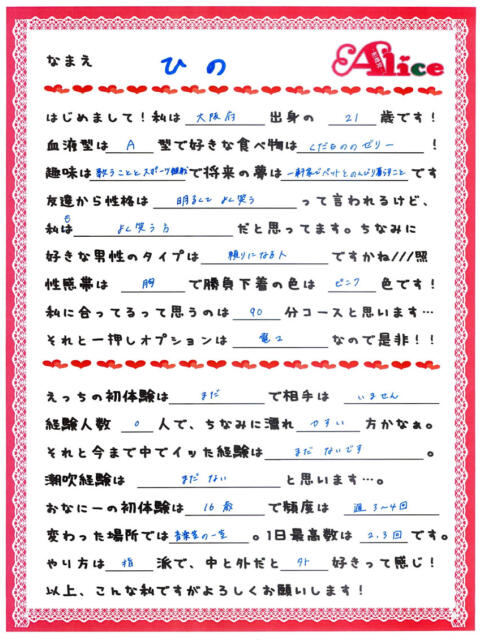 なまえ ひの Alice
はじめまして!私は 大阪府 出身の 21 歳です!
血液型は A 型で好きな食べ物は くだもののゼリー !
趣味は 歌うこととスポーツ観戦 で将来の夢は 一軒家でペットとのんびり暮らすこと です
友達から性格は 明るくて よく笑う って言われるけど、
私は も よく笑う方 だと思ってます。ちなみに
好きな男性のタイプは 頼りになる人 ですかね///照
性感帯は 胸 で勝負下着の色は ピンク 色です!
私に合ってるって思うのは 90 分コースと思います…
それと一押しオプションは 電マ なので是非!!
えっちの初体験は まだ で相手は いません
経験人数 0 人で、ちなみに濡れ やすい 方かなぁ。
それと今まで中でイッた経験は まだ ないです 。
潮吹経験は まだ ない と思います…。
変わった場所では 音楽室の一室 。1日最高数は 2,3回 です。
やり方は 指 派で、中と外だと 外 好きって感じ!
以上、こんな私ですがよろしくお願いします!